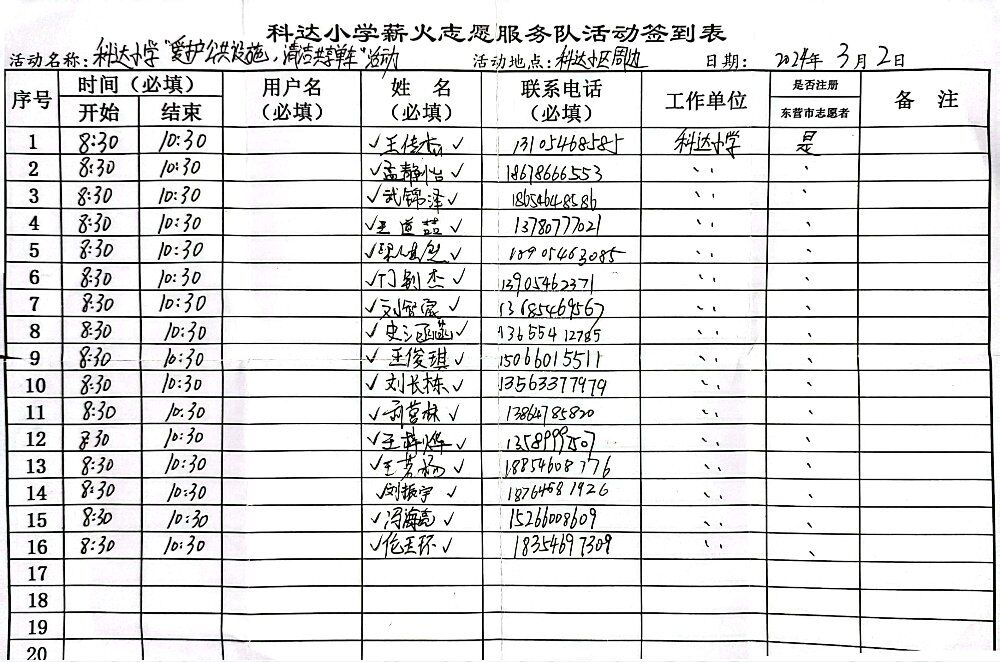 科达小学薪火志愿服务队活动签到表
活动名称：科达小学"爱护公共设施，清洁共享单车"活动 活动地点：科达小区周边 日期：2024年3月2日
序号 时间（必填） 用户名（必填） 姓 名（必填） 联系电话（必填） 工作单位 是否注册 备 注
开始 结束 东营市志愿者
1 8:30 10:30 ✓王佳杰✓ 13105468585 科达小学 是
2 8:30 10:30 ✓孟静怡✓ 18678666553 、、 、
3 8:30 10:30 ✓武锦泽✓ 18654648586 、、 、
4 8:30 10:30 ✓王道喆✓ 13780777021 、、 、
5 8:30 10:30 ✓ ✓ 18905463085 、、 、
6 8:30 10:30 ✓门剑杰✓ 13905462371 、、 、
7 8:30 10:30 ✓刘 ✓ 13685469567 、、 、
8 8:30 10:30 ✓史 涵菡✓ 13655412785 、、 、
9 8:30 10:30 ✓王俊琪✓ 15066015511 、、 、
10 8:30 10:30 ✓刘长栋✓ 13563377979 、、 、
11 8:30 10:30 ✓ 营林✓ 13864785820 、、 、
12 8:30 10:30 ✓王梓烨✓ 、、 、
13 8:30 10:30 ✓王茗杨✓ 18854608776 、、 、
14 8:30 10:30 刘振宇✓ 18764581926 、、 、
15 8:30 10:30 ✓冯海亮✓ 15266008609 、、 、
16 8:30 10:30 ✓伦玉环✓ 18354697309 、、 、
17
18
19
20